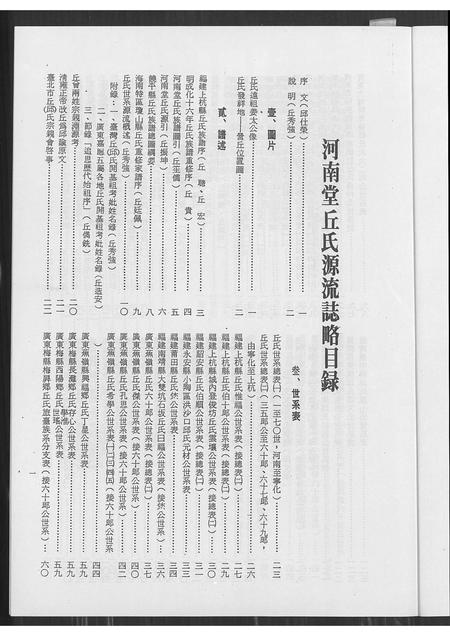 河南堂丘氏源流誌略目錄
序　文（邱仕榮）……一
說　明（丘秀強）……二
壹、圖片
丘氏遠祖姜太公像……一
丘氏發祥地—營丘位置圖……二
貳、譜述
福建上杭縣丘氏族譜序（丘　聰、丘　宏）……三
明成化十六年丘氏族譜重修序（丘　貴）……四
河南堂丘氏族譜圖引（丘至儒）……五
河南堂丘氏源引（丘振坤）……六
饒平縣丘氏族譜總圖綱要……八
海南特區瓊山縣丘氏重修家譜序（丘廷佩）……九
丘氏世系源流概述（丘秀強）……一〇
附錄：一、臺灣丘(邱)氏開基祖考妣姓名錄（丘秀強）
二、廣東嘉應五屬各地丘氏開基祖考妣姓名錄（丘造安）
三、節錄「追思歷代始祖序」（丘偶銑）
丘曾兩姓宗親淵源考……二〇
清雍正帝改丘爲邱諭原文……二一
臺北市丘(邱)氏宗親會啓事……二二
叁、世系表
丘氏世系總表㈠（一至七〇世，河南至寧化）……二三
丘氏世系總表㈡（三五郎公至六十郎、六十七郎、六十九郎，
由寧化至上杭）……二六
福建上杭縣丘氏惟福公世系表（接總表㈡）……二七
福建上杭縣丘氏伯十郎公世系表（接總表㈡）……二九
福建上杭縣城內登俊坊丘氏雲壤公世系表（接總表㈡）……三〇
福建詔安縣丘氏伯順公世系表（接總表㈡）……三一
福建永安縣小陶區洪沙口邱氏元材公世系表……三三
福建莆田縣丘氏烋公世系表……三四
福建南靖縣大雙坑石坂丘氏曰福公世系表（接烋公世系）……三六
廣東蕉嶺縣丘氏六十郎公世系表（接總表㈡）……三七
廣東蕉嶺縣丘氏傑公世系表（接六十郎公世系）……四〇
廣東蕉嶺縣丘氏孔思公世系表（接六十郎公世系）……四二
廣東蕉嶺縣丘氏希學公世系表㈠㈡㈢㈣㈤（接六十郎公世系
）……四四
廣東蕉嶺縣興福鄉丘氏丁星公世系表……五九
廣東梅縣長灘鄉丘氏存心公世系表……五九
廣東梅縣西陽鄉丘氏世瑤公世系表……五九
廣東梅縣梅屏鄉丘氏旅臺族系分支表（接六十郎公世系）……六〇
一